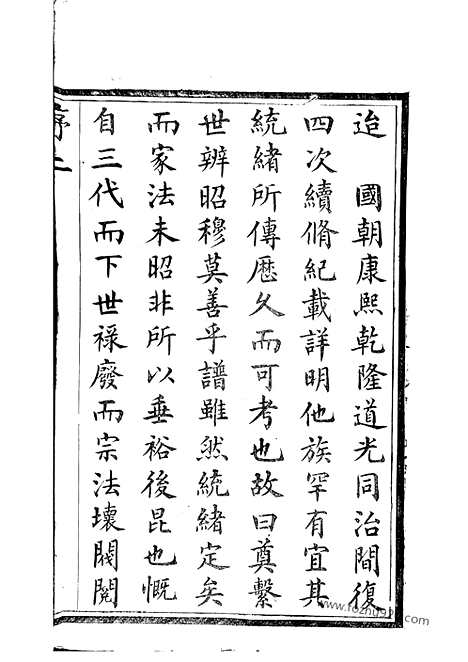 迨　國朝康熙乾隆道光同治間復
四次續脩紀載詳明他族罕有宜其
統緒所傳歷久而可考也故曰奠繫
世辨昭穆莫善乎譜雖然統緒定矣
而家法未昭非所以垂裕後昆也慨
自三代而下世祿廢而宗法壞閥閱
序二